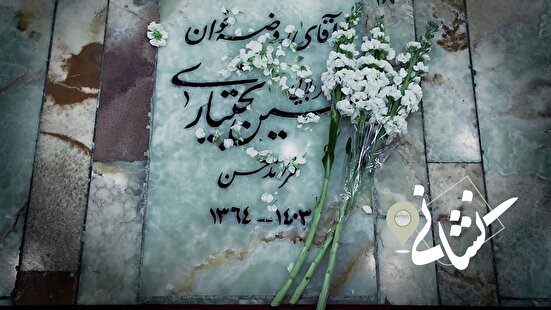 آقای روضه خوان
حسین بختیاری
فرزند حسن
۱۳۶۴-۱۴۰۳
نشانی